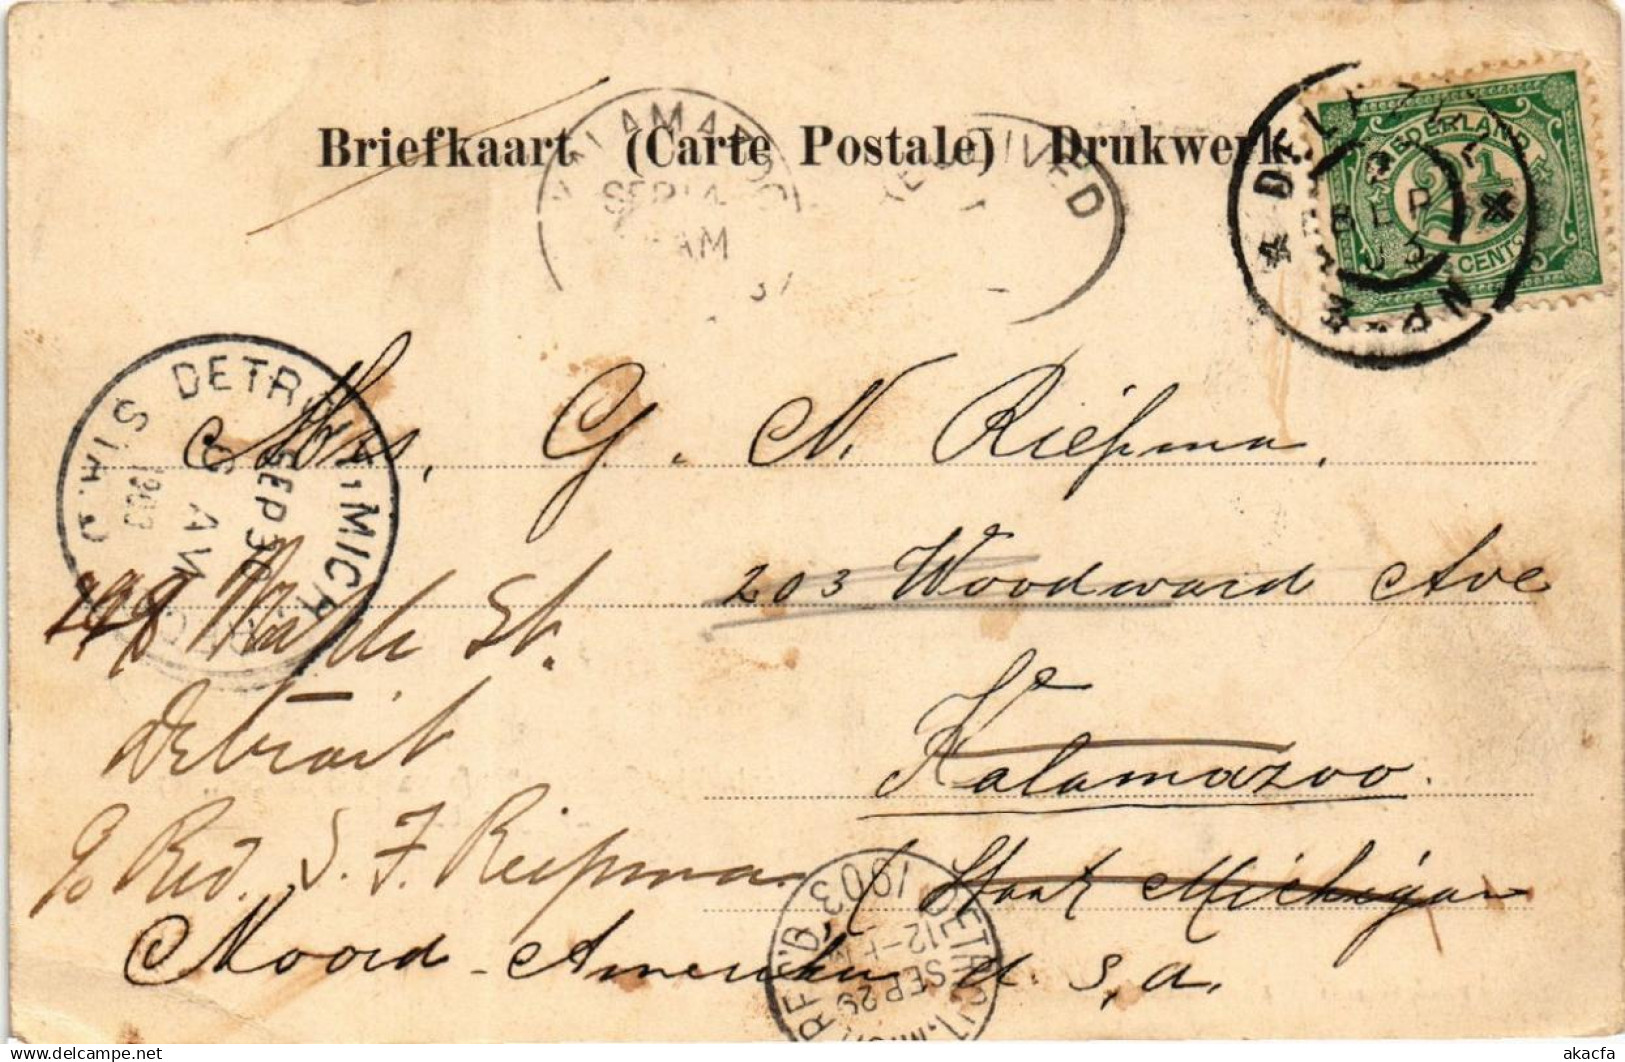 Briefkaart (Carte Postale) Drukwerk.
KALAMAZOO
SEP 14
AM
RECEIVED
DELFZIJL
SEP
03
NEDERLAND
2 1/2
CENT
DETROIT, MICH
SEP 30
6 AM
1903
Mrs. G. N. Riepma.
203 Woodward Ave
Kalamazoo.
(Staat Michigan
Noord-Amerika U. S, A.
Maple St.
Detroit
c/o Red. S. F. Riepma
REC'D.
DETROIT, MICH.
SEP 29
12-
1903
akacfa
delcampe.net